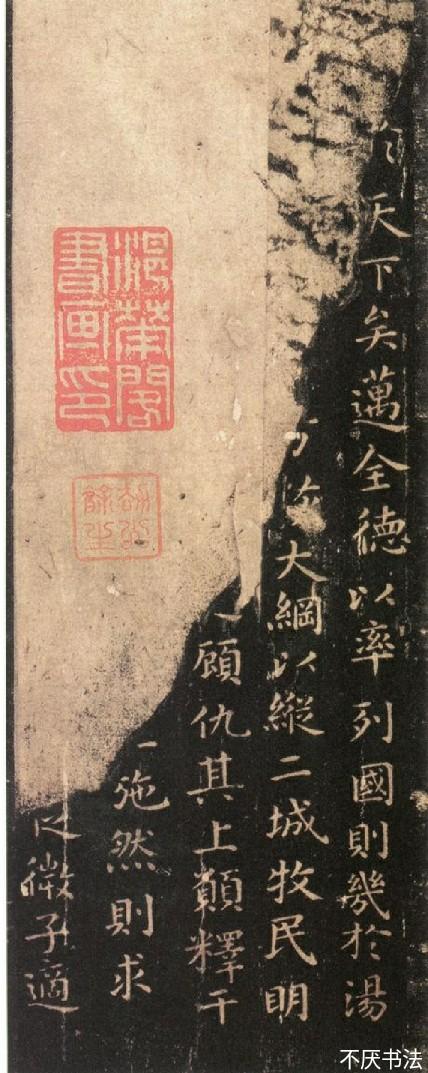 天下矣邁全德以率列國則幾於湯
大綱以縱二城牧民明
顧仇其上願釋干
施然則求
微子適
閣
書畫印
不厌书法